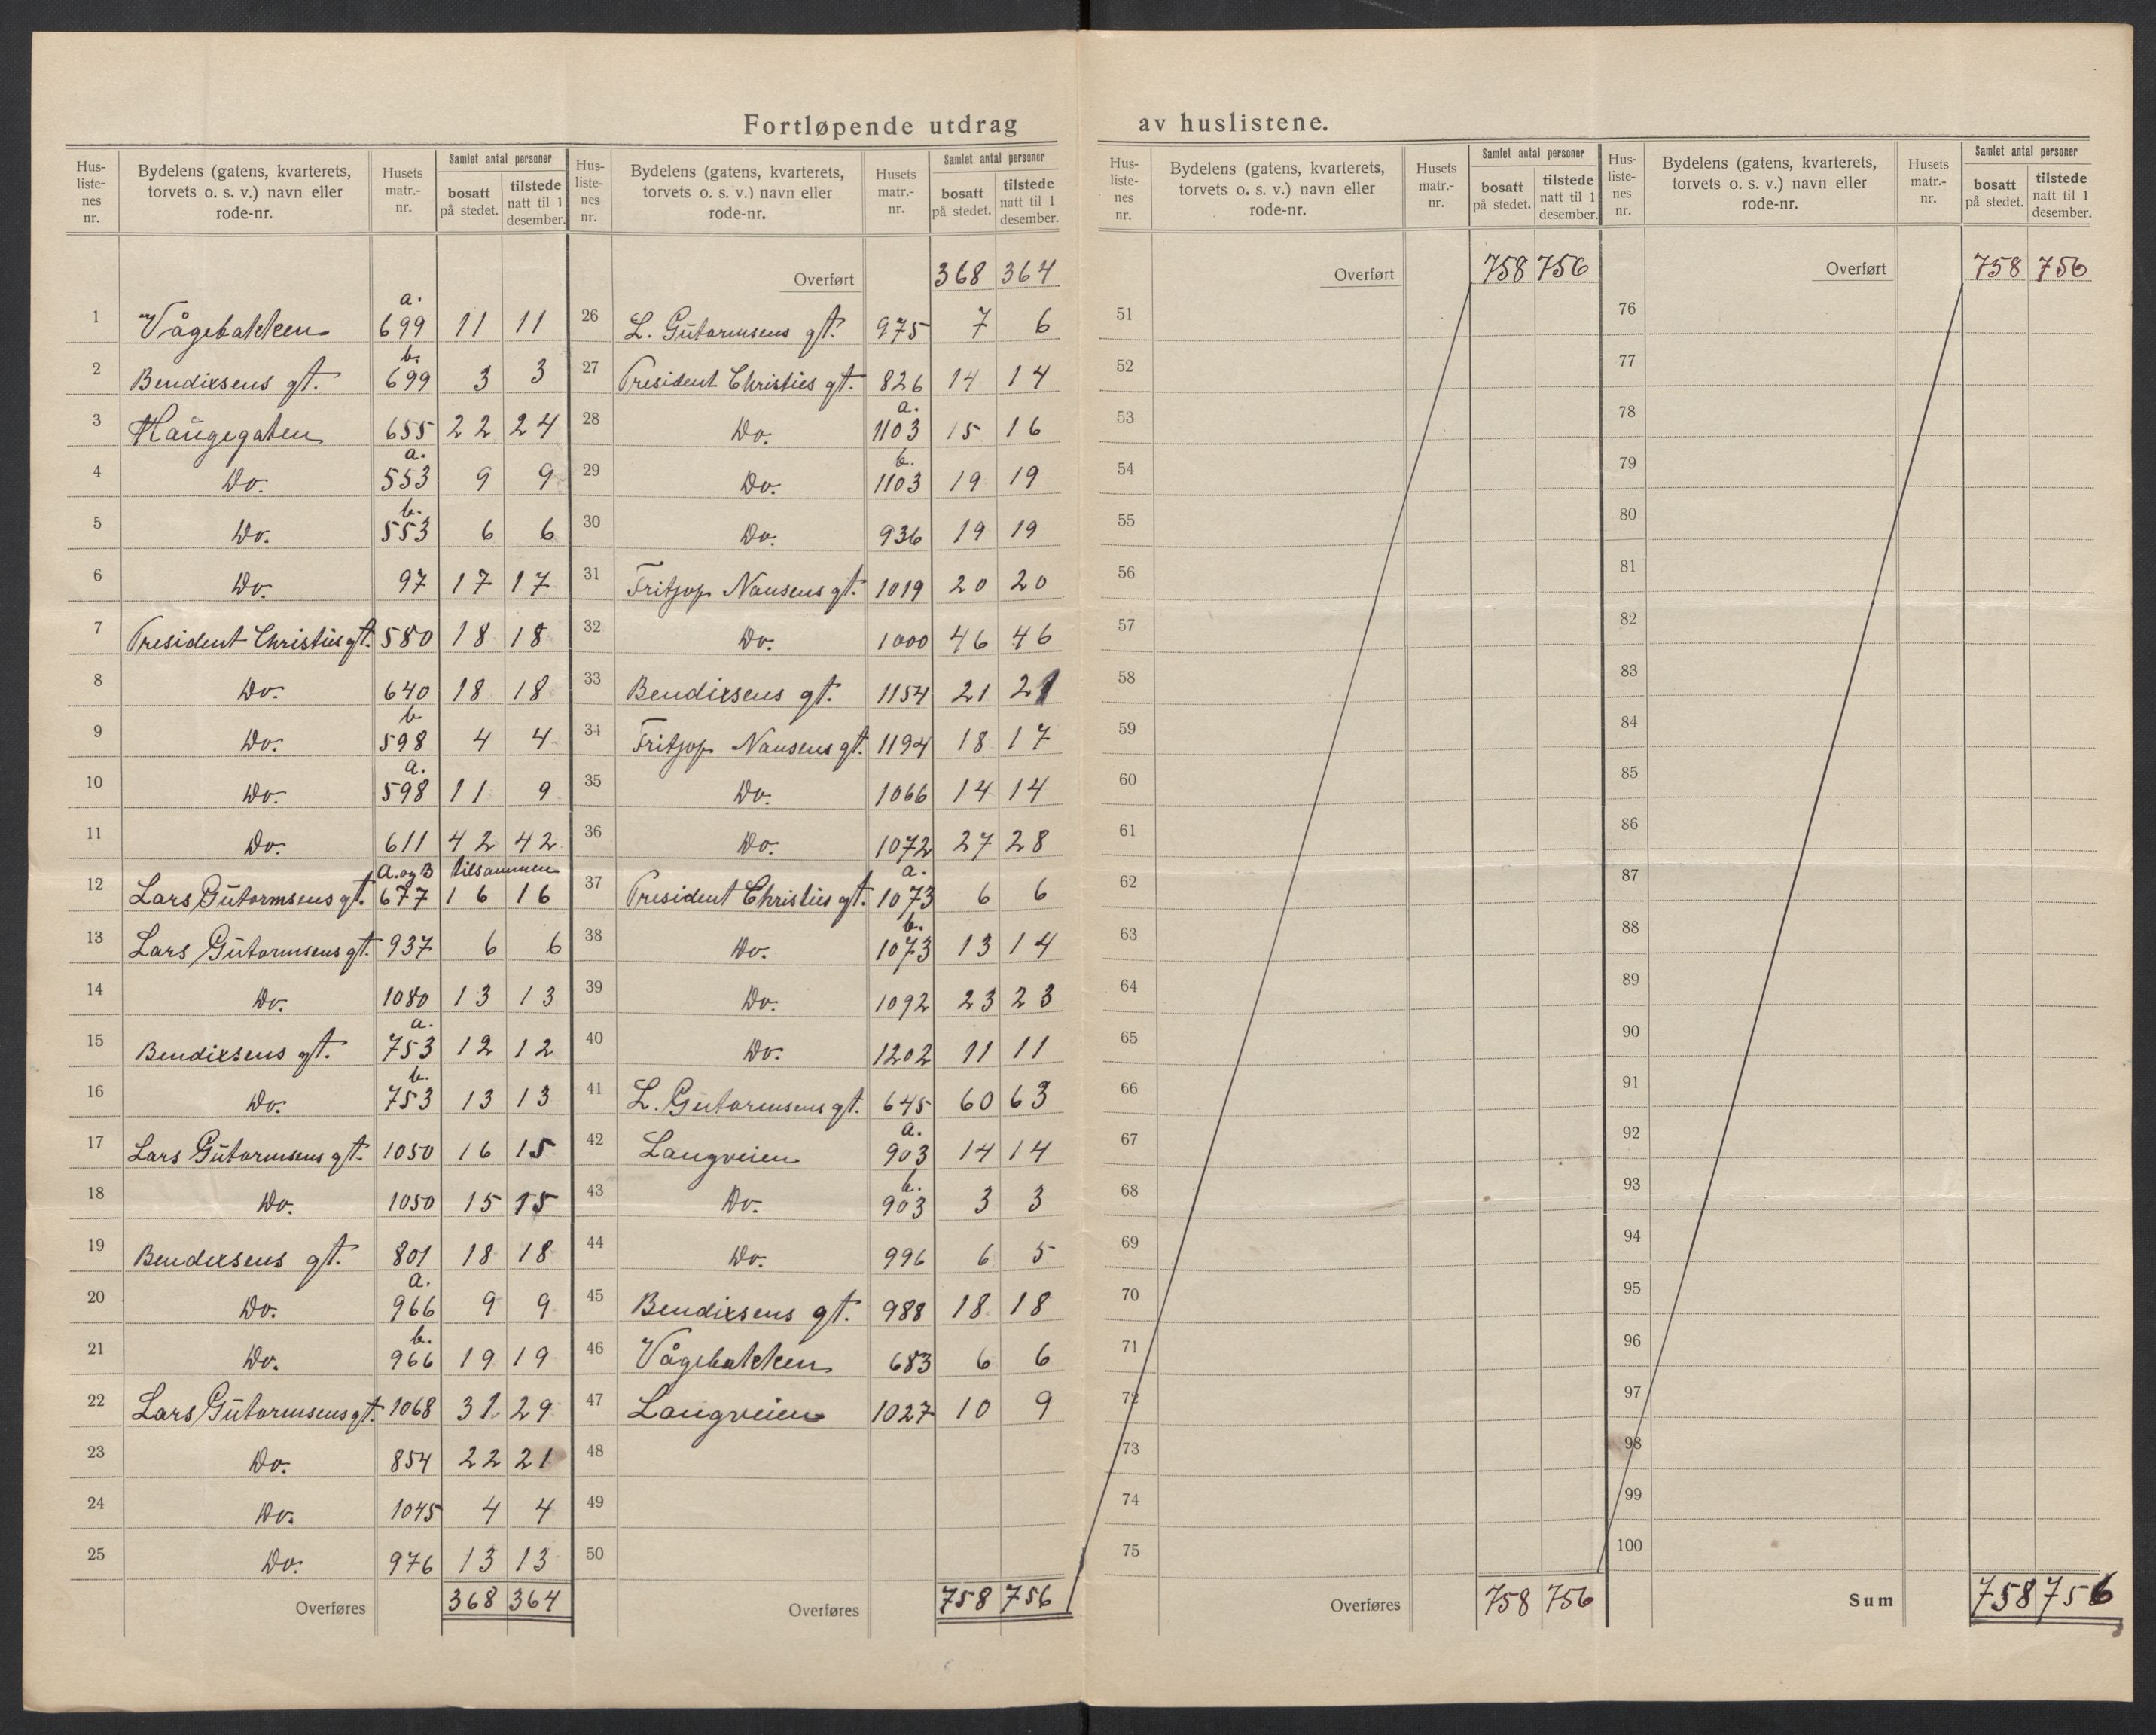 Fortløpende utdrag av huslistene.
Hus-liste-nes nr. | Bydelens (gatens, kvarterets, torvets o. s. v.) navn eller rode-nr. | Husets matr.-nr. | Samlet antal personer bosatt på stedet. | tilstede natt til 1 desember.
1 Vågebakken a. 699 11 11
2 Bendixsens gt. b. 699 3 3
3 Haugegaten 655 22 24
4 Do. a. 553 9 9
5 Do. b. 553 6 6
6 Do. 97 17 17
7 President Christies gt. 580 18 18
8 Do. 640 18 18
9 Do. b 598 4 4
10 Do. a. 598 11 9
11 Do. 611 42 42
12 Lars Gütormsens gt. A. og B 677 tilsammen 16 16
13 Lars Gütormsens gt. 937 6 6
14 Do. 1080 13 13
15 Bendixsens gt. a. 753 12 12
16 Do. b. 753 13 13
17 Lars Gütormsens gt. 1050 16 15
18 Do. 1050 15 15
19 Bendixsens gt. 801 18 18
20 Do. a. 966 9 9
21 Do. b. 966 19 19
22 Lars Gütormsens gt. 1068 31 29
23 Do. 854 22 21
24 Do. 1045 4 4
25 Do. 976 13 13
Overføres 368 364
Hus-liste-nes nr. | Bydelens (gatens, kvarterets, torvets o. s. v.) navn eller rode-nr. | Husets matr.-nr. | Samlet antal personer bosatt på stedet. | tilstede natt til 1 desember.
Overført 368 364
26 L. Gütormsens gt. 975 7 6
27 President Christies gt. 826 14 14
28 Do. a. 1103 15 16
29 Do. b. 1103 19 19
30 Do. 936 19 19
31 Fritjop Nansens gt. 1019 20 20
32 Do. 1000 46 46
33 Bendixsens gt. 1154 21 21
34 Fritjop Nansens gt. 1194 18 17
35 Do. 1066 14 14
36 Do. 1072 27 28
37 President Christies gt. a. 1073 6 6
38 Do. b. 1073 13 14
39 Do. 1092 23 23
40 Do. 1202 11 11
41 L. Gütormsens gt. 645 60 63
42 Langveien a. 903 14 14
43 Do. b. 903 3 3
44 Do. 996 6 5
45 Bendixsens gt. 988 18 18
46 Vågebakken 683 6 6
47 Langveien 1027 10 9
48
49
50
Overføres 758 756
Hus-liste-nes nr. | Bydelens (gatens, kvarterets, torvets o. s. v.) navn eller rode-nr. | Husets matr.-nr. | Samlet antal personer bosatt på stedet. | tilstede natt til 1 desember.
Overført 758 756
51
52
53
54
55
56
57
58
59
60
61
62
63
64
65
66
67
68
69
70
71
72
73
74
75
Overføres 758 756
Hus-liste-nes nr. | Bydelens (gatens, kvarterets, torvets o. s. v.) navn eller rode-nr. | Husets matr.-nr. | Samlet antal personer bosatt på stedet. | tilstede natt til 1 desember.
Overført 758 756
76
77
78
79
80
81
82
83
84
85
86
87
88
89
90
91
92
93
94
95
96
97
98
99
100
Sum 758 756